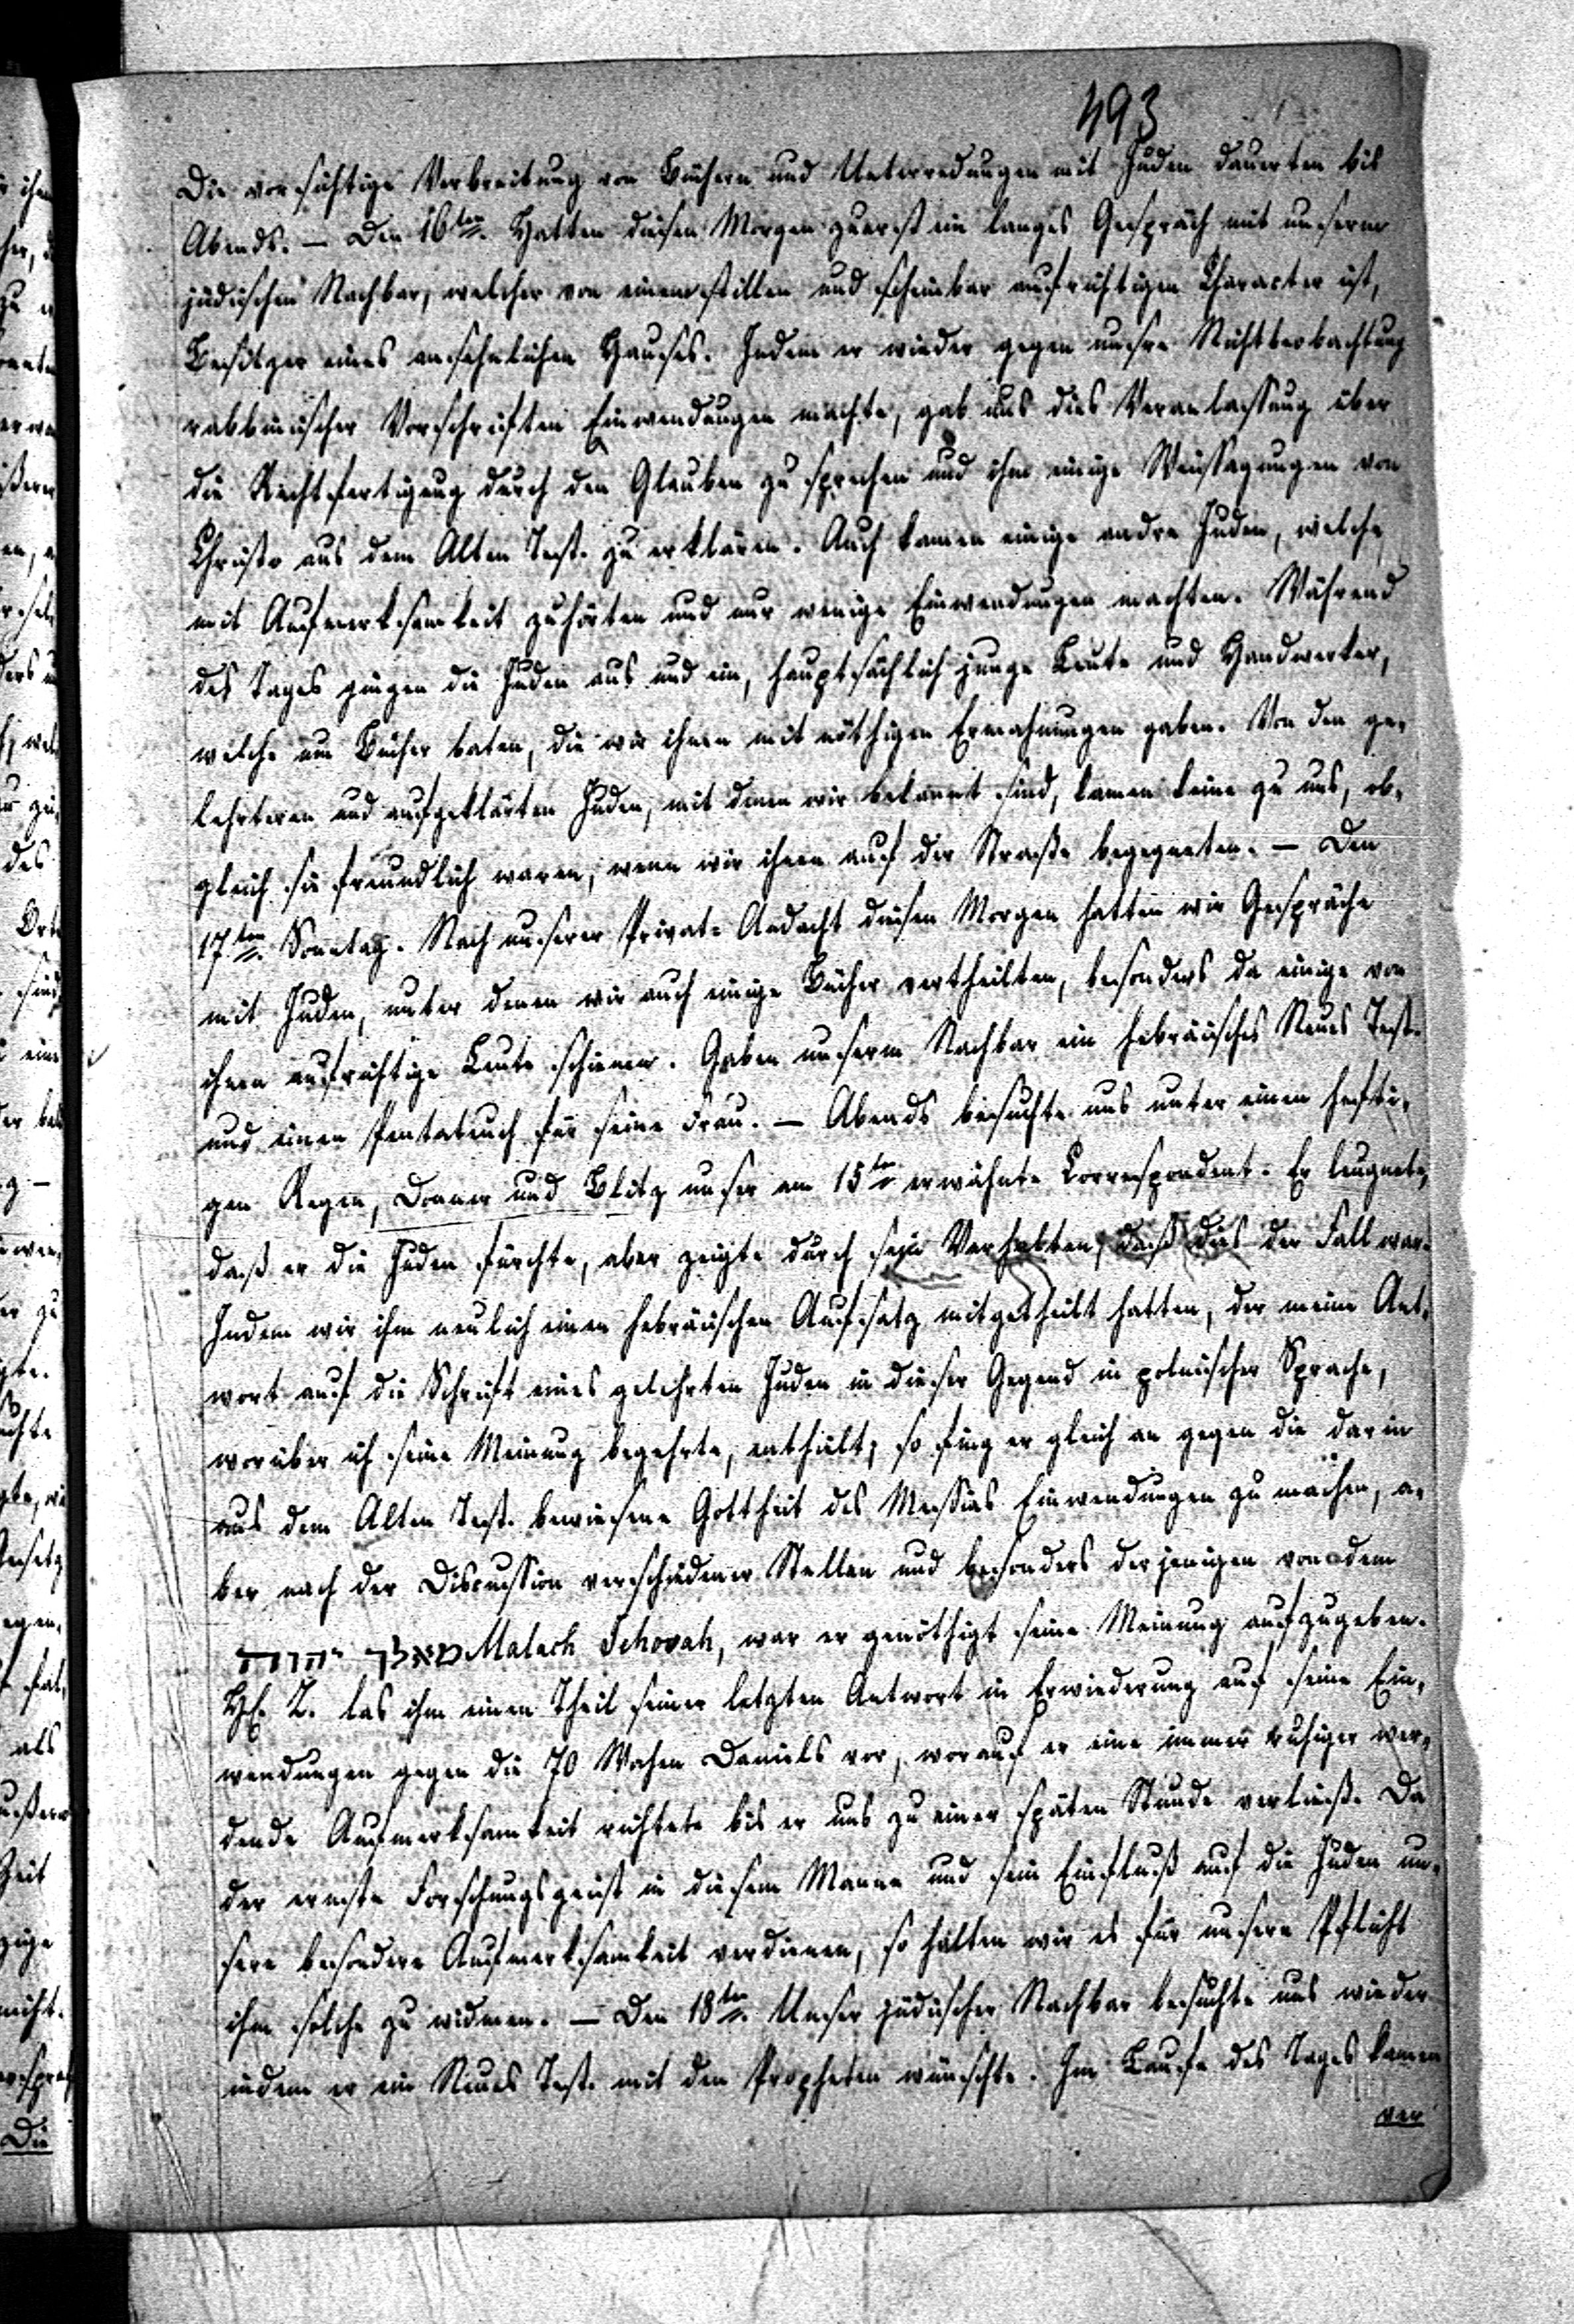 493
Die vorsichtige Verbreitung von Büchern und Unterredungen mit Juden dauerten bis
Abends. – Den 16ten. Hatten diesen Morgen zuerst ein langes Gespräch mit unserm
jüdischen Nachbar, welcher von einem stillen und scheinbar aufrichtigen Character ist,
Besitzer eines ansehnlichen Hauses. Indem er wieder gegen unsre Nichtbeobachtung
rabbinischer Vorschriften Einwendungen machte, gab uns dies Veranlassung über
die Rechtfertigung durch den Glauben zu sprechen und ihm einige Weissagungen von
Christo aus dem Alten Test. zu erklären. Auch kamen einige andre Juden, welche
mit Aufmerksamkeit zuhörten und nur wenige Einwendungen machten. Während
des Tages gingen die Juden aus und ein, hauptsächlich junge Leute und Handwerker,
welche um Bücher baten, die wir ihnen mit nöthigen Ermahnungen gaben. Von den ge-
lehrteren und aufgeklärten Juden, mit denen wir bekannt sind, kamen keine zu uns, ob-
gleich sie freundlich waren, wenn wir ihnen auf der Straße begegneten. – Den
17ten. Sonntag. Nach unserer Privat-Andacht diesen Morgen hatten wir Gespräche
mit Juden, unter denen wir auch einige Bücher vertheilten, besonders da einige von
ihnen aufrichtige Leute schienen. Gaben unserm Nachbar ein hebräisches Neues Test.
und einen Pentateuch für seine Frau. – Abends besuchte uns unter einen hefti-
gen Regen, Donner und Blitz unser am 15ten erwähnte Correspondent. Er leugnete,
daß er die Juden fürchte, aber zeigte durch sein Verhalten, daß dies der Fall war.
Indem wir ihm neulich einen hebräischen Aufsatz mitgetheilt hatten, der meine Ant-
wort auf die Schrift eines gelehrten Juden in dieser Gegend in polnischer Sprache,
worüber ich seine Meinung begehrte, enthielt; so fing er gleich an gegen die darin
aus dem Alten Test. bewiesene Gottheit des Messias Einwendungen zu machen, a-
ber nach der Discussion verschiedener Stellen und besonders derjenigen von dem
מאלך יהוה Malach Jehovah, war er genöthigt seine Meinung aufzugeben.
las ihm einen Theil seiner letzten Antwort in Erwiederung auf seine Ein-
wendungen gegen die 70 Wochen Daniels vor, worauf er eine immer ruhiger wer-
dende Aufmerksamkeit richtete bis er uns zu einer späten Stunde verließ. Da
der ernste Forschungsgeist in diesem Manne und sein Einfluß auf die Juden un-
sere besondere Aufmerksamkeit verdienen, so halten wir es für unsere Pflicht
ihm solche zu widmen. – Den 18ten. Unser jüdischer Nachbar besuchte uns wieder
indem er ein Neues Test. mit den Propheten wünschte. Im Laufe des Tages kamen
ver